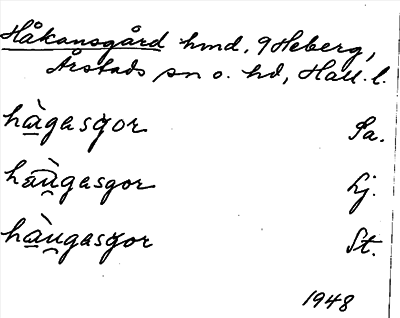 Håkansgård hmd. 9 Heberg,
Årstads sn o. hd, Hall. l.
hà̱gasgor Sa.
ha̱ù̯gasgor Lj.
hà̱u̯gasgor St.
1948